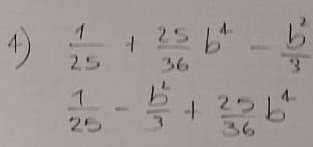 4) 1/25 + 25/36 b⁴ - b²/3
1/25 - b²/3 + 25/36 b⁴